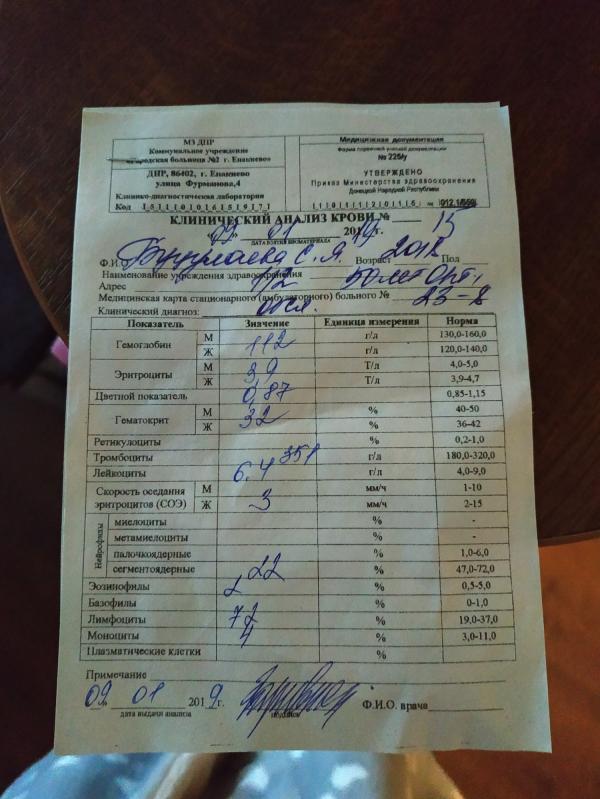 МЗ ДНР
Коммунальное учреждение
«Городская больница №2 г. Енакиево»
ДНР, 86402, г. Енакиево
улица Фурманова,4
Клинико-диагностическая лаборатория
Код
Медицинская документация
Форма первичной учетной документации
№ 225/у
УТВЕРЖДЕНО
Приказ Министерства здравоохранения
Донецкой Народной Республики
КЛИНИЧЕСКИЙ АНАЛИЗ КРОВИ № 15
09 01 2019г.
ДАТА ВЗЯТИЯ БИОМАТЕРИАЛА
Ф.И.О. С. Я. Возраст 2018 Пол
Наименование учреждения здравоохранения
Адрес 1/2 50 лет Окт.
Медицинская карта стационарного (амбулаторного) больного № 23-8
Клинический диагноз: обсл.
Показатель Значение Единица измерения Норма
Гемоглобин М 112 г/л 130,0-160,0
Ж г/л 120,0-140,0
Эритроциты М 3,9 Т/л 4,0-5,0
Ж Т/л 3,9-4,7
Цветной показатель 0,87 0,85-1,15
Гематокрит М 32 % 40-50
Ж % 36-42
Ретикулоциты % 0,2-1,0
Тромбоциты 351 г/л 180,0-320,0
Лейкоциты 6,4 г/л 4,0-9,0
Скорость оседания эритроцитов (СОЭ) М мм/ч 1-10
Ж 3 мм/ч 2-15
Нейрофилы
миелоциты % -
метамиелоциты % -
палочкоядерные % 1,0-6,0
сегментоядерные 22 % 47,0-72,0
Эозинофилы 2 % 0,5-5,0
Базофилы % 0-1,0
Лимфоциты 72 % 19,0-37,0
Моноциты 4 % 3,0-11,0
Плазматические клетки %
Примечание
09 01 2019г. Ф.И.О. врача
дата выдачи анализа подпись